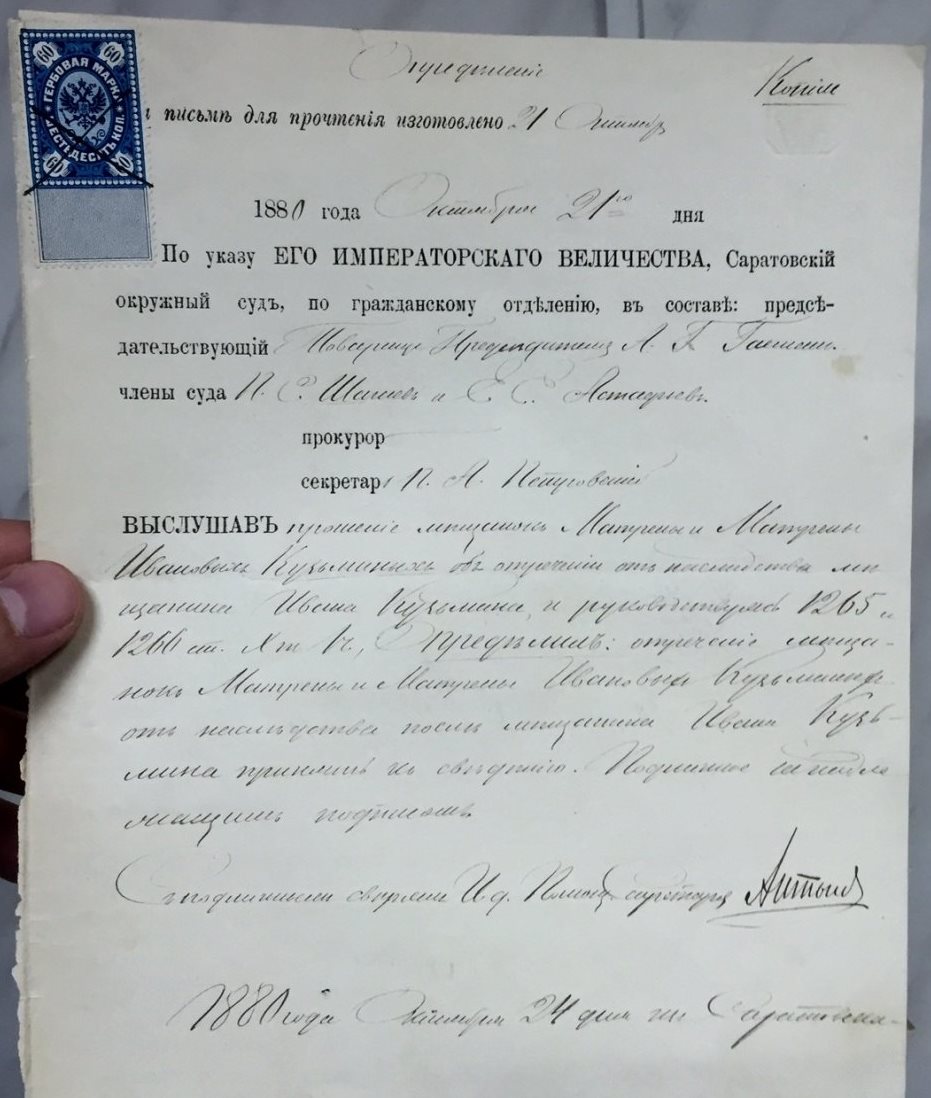 Опредѣленіе
Копія
ГЕРБОВАЯ МАРКА
ШЕСТЬДЕСЯТЪ КОП.
60 60
60 60
письмѣ для прочтенія изготовлено 21 Октября
1880 года Октября 21го дня
По указу ЕГО ИМПЕРАТОРСКАГО ВЕЛИЧЕСТВА, Саратовскій
окружный судъ, по гражданскому отдѣленію, въ составѣ: предсѣ-
дательствующій Товарищъ Предсѣдателя А. Г.
члены суда П. С. и Е. С. Астафьевъ.
прокурор
секретарь П. А.
ВЫСЛУШАВЪ прошеніе мѣщанокъ Матрены и Матрены
Ивановыхъ Кузьминыхъ объ отреченіи отъ наслѣдства мѣ-
щанина Ивана Кузьмина, и руководствуясь 1265 и
1266 ст. X т. 1 ч., Опредѣлилъ: отреченіе мѣща-
нокъ Матрены и Матрены Ивановыхъ Кузьминыхъ
отъ наслѣдства послѣ мѣщанина Ивана Кузь-
мина принять къ свѣдѣнію. Подлинное за надле
жащимъ подписомъ
Съ подлиннымъ свѣрена И. д. Помощ. секретаря
1880 года Октября 24 дня